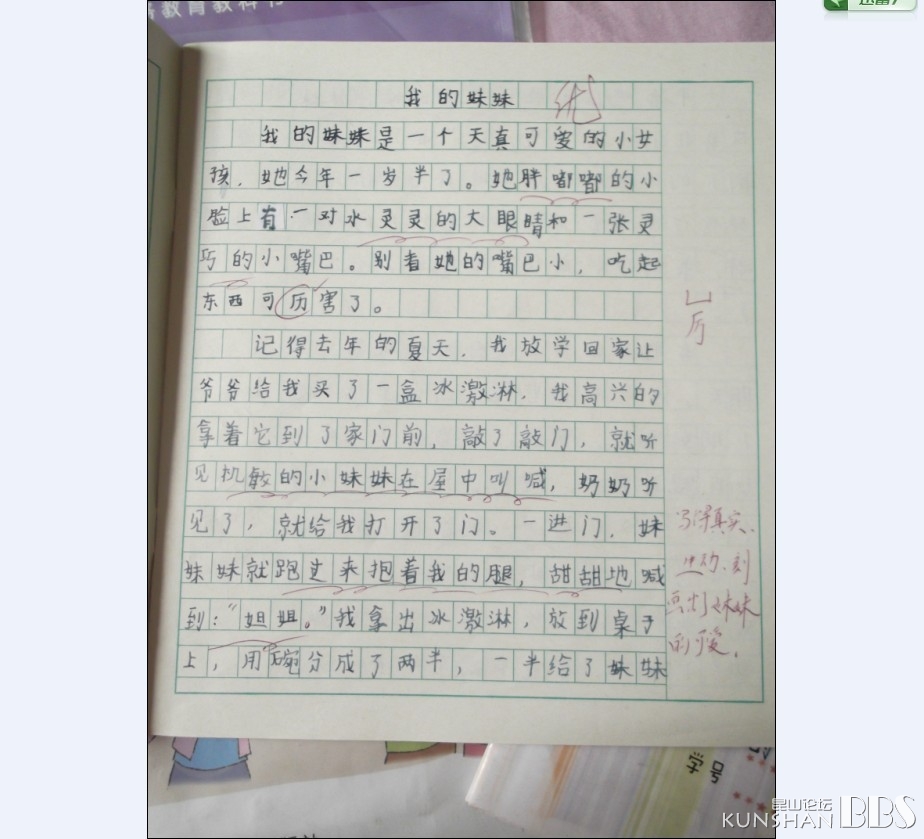 教育教科书
我的妹妹 优
我的妹妹是一个天真可爱的小女
孩，她今年一岁半了。她胖嘟嘟的小
脸上有一对水灵灵的大眼睛和一张灵
巧的小嘴巴。别看她的嘴巴小，吃起
东西可历害了。
厉
记得去年的夏天，我放学回家让
爷爷给我买了一盒冰激淋，我高兴的
拿着它到了家门前，敲了敲门，就听
见机敏的小妹妹在屋中叫喊，奶奶听
见了，就给我打开了门。一进门，妹
妹妹就跑过来抱着我的腿，甜甜地喊
到：“姐姐。”我拿出冰激淋，放到桌子
上，用碗分成了两半，一半给了妹妹
写得真实、
生动、刻
画出了妹妹
的可爱。
昆山论坛
KUNSHAN BBS